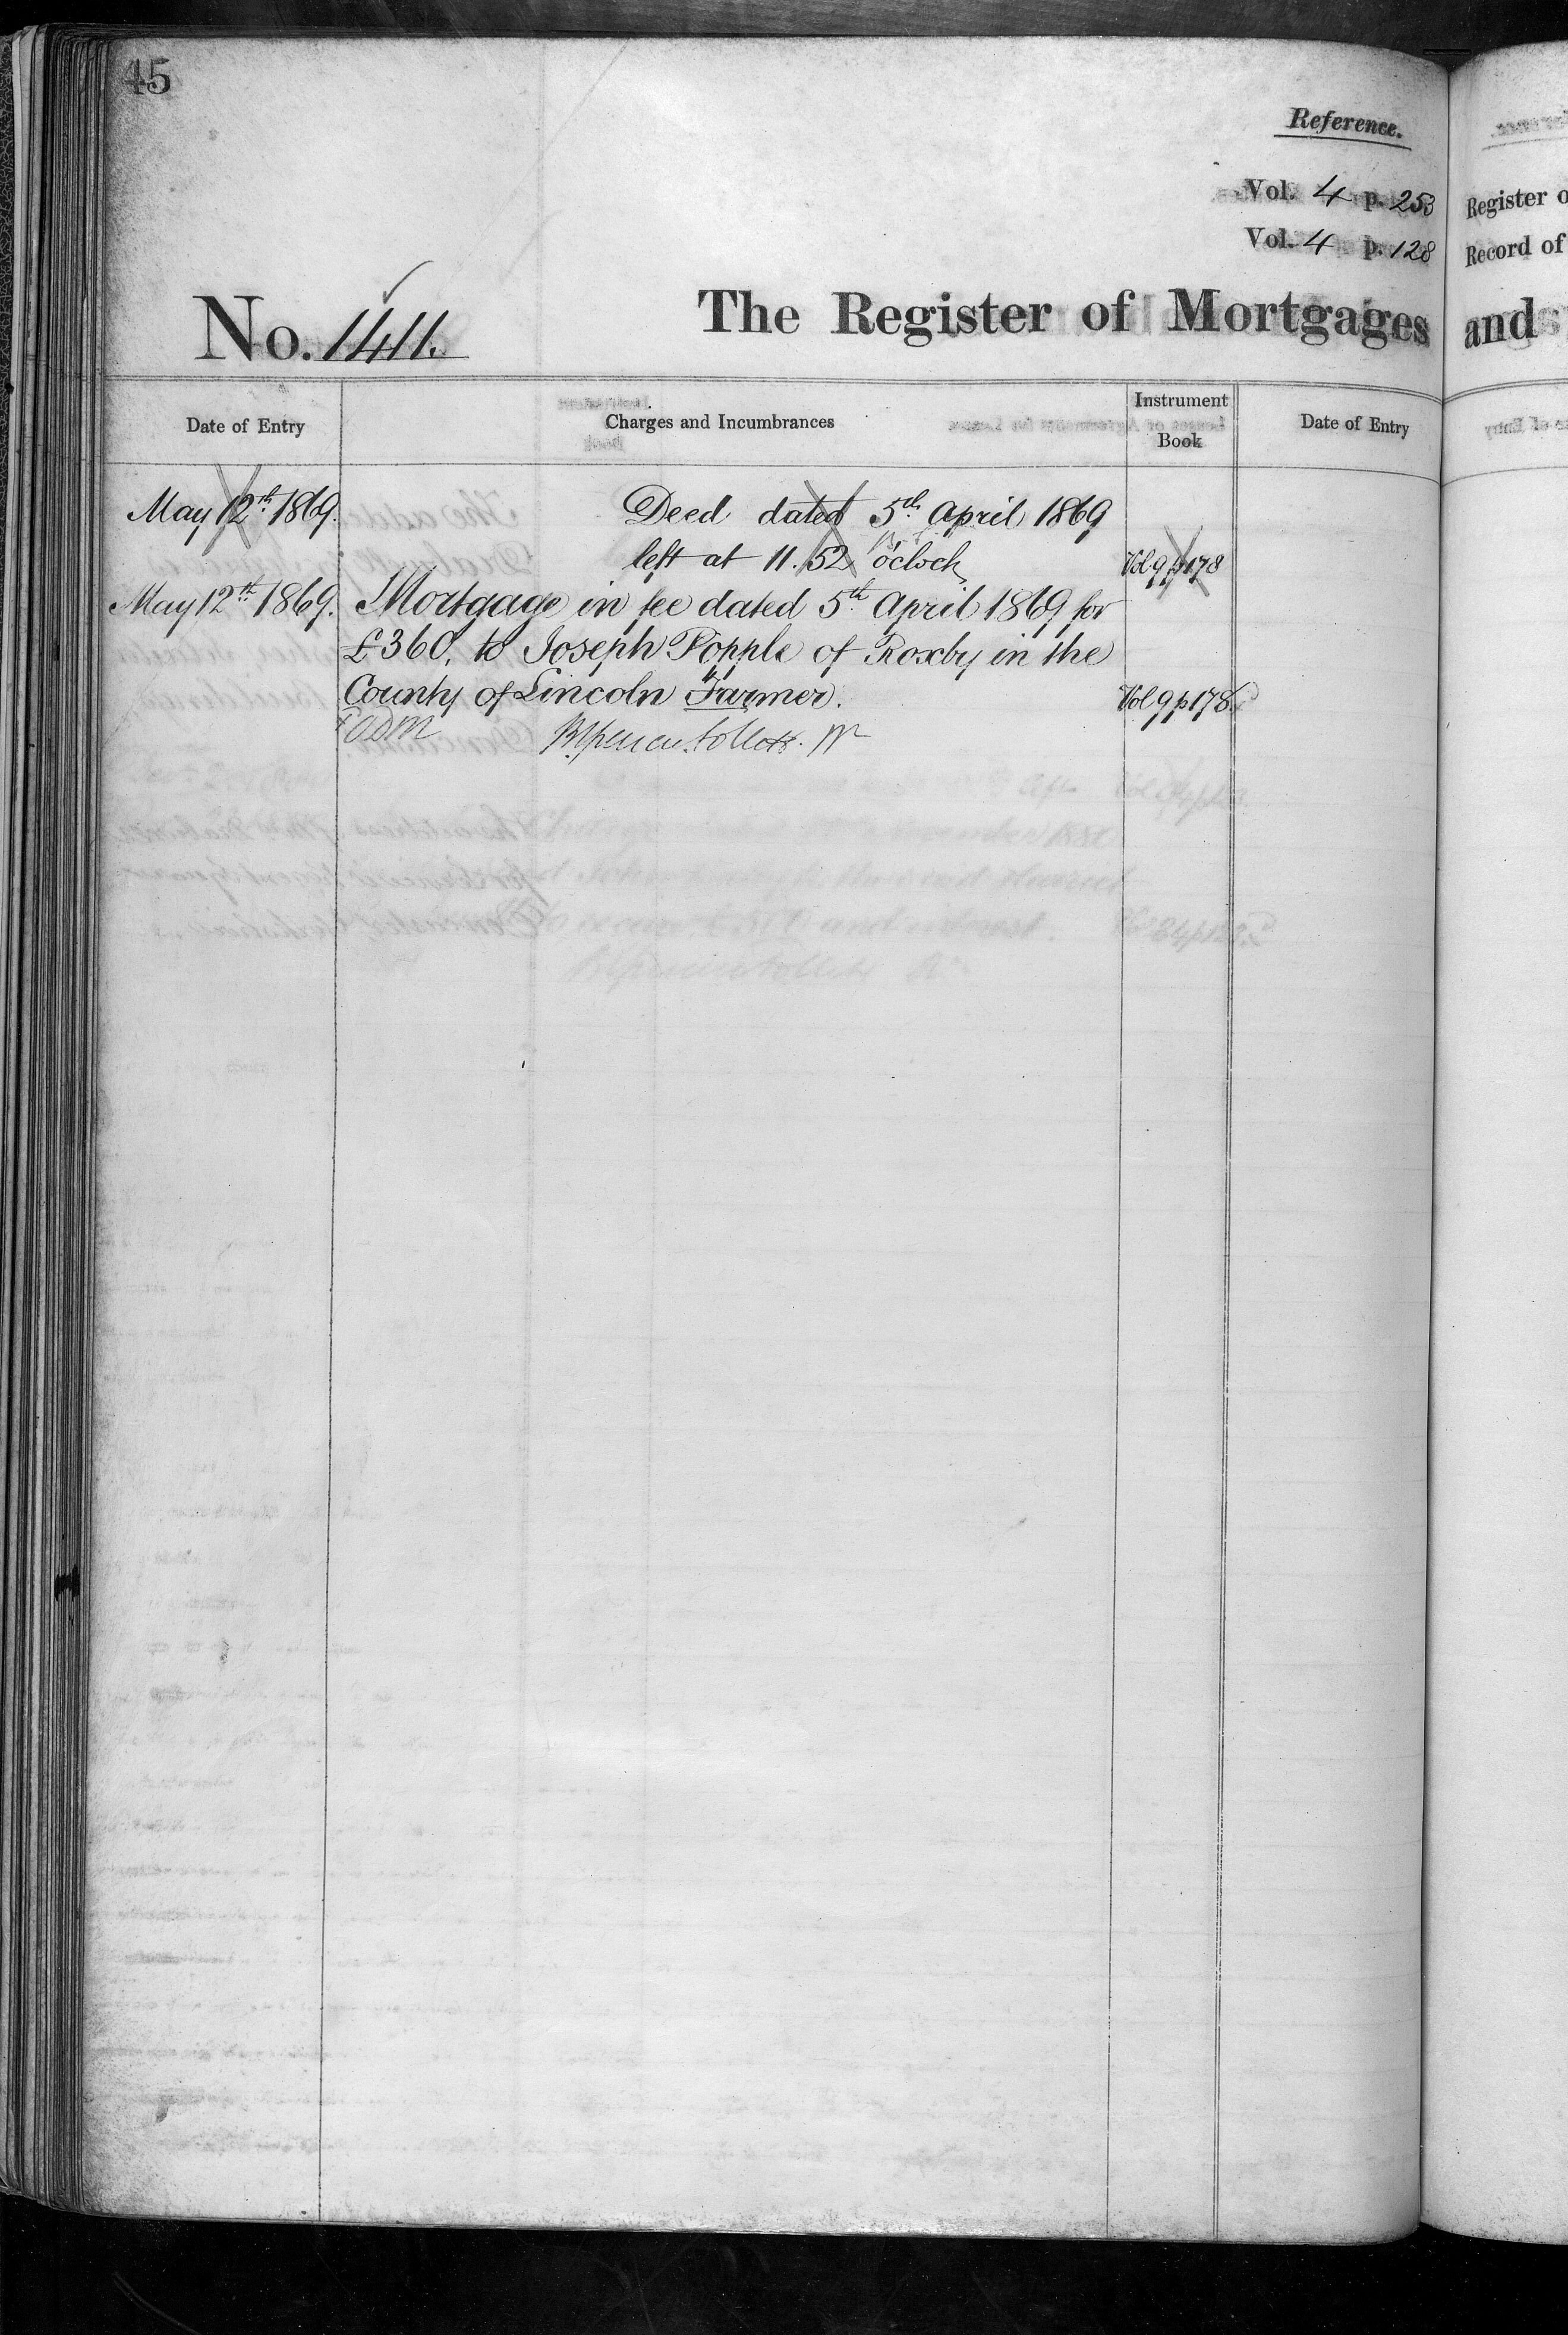 45
Reference.
Vol. 4 p. 253
Vol. 4 p. 128
No. 1411.
The Register of Mortgages
Date of Entry
Charges and Incumbrances
Instrument
Book
Date of Entry
May 12th 1869.
Deed dated 5th April 1869
left at 11.52 o'clock
Vol 9 p 178
May 12th 1869.
Mortgage in fee dated 5th April 1869 for
£360, to Joseph Popple of Roxby in the
County of Lincoln Farmer.
Vol 9 p 178
Register o
Record of
and
Date of Entry